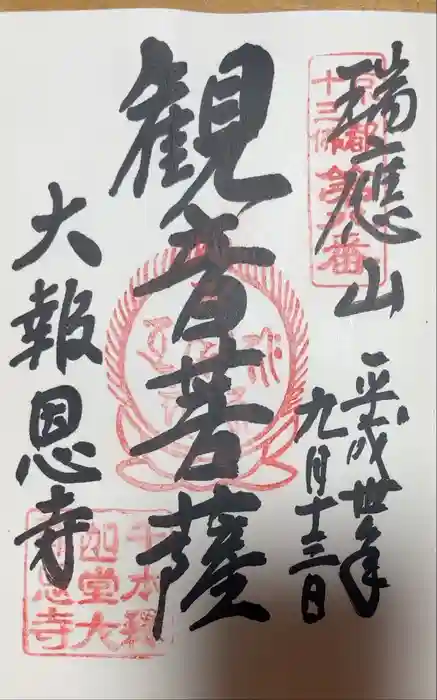 京都
十三佛
第八番
瑞應山
平成丗年
九月十三日
観音菩薩
大報恩寺
千本釋
迦堂大
報恩寺